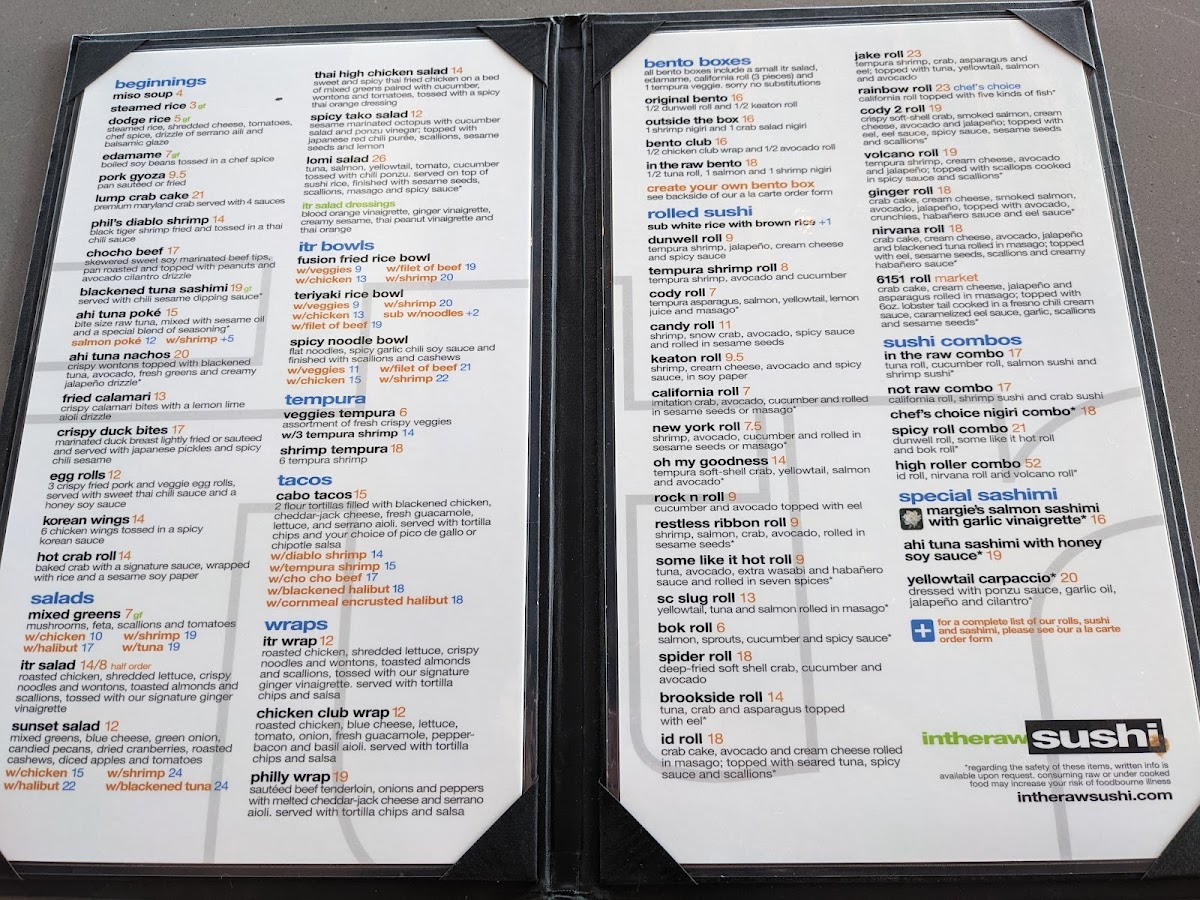 beginnings
miso soup 4
steamed rice 3 gf
dodge rice 5 gf
steamed rice, shredded cheese, tomatoes,
chef spice, drizzle of serrano aili and
balsamic glaze
edamame 7 gf
boiled soy beans tossed in a chef spice
pork gyoza 9.5
pan sautéed or fried
lump crab cake 21
premium maryland crab served with 4 sauces
phil's diablo shrimp 14
black tiger shrimp fried and tossed in a thai
chili sauce
chocho beef 17
skewered sweet soy marinated beef tips,
pan roasted and topped with peanuts and
avocado cilantro drizzle
blackened tuna sashimi 19 gf
served with chili sesame dipping sauce*
ahi tuna poké 15
bite size raw tuna, mixed with sesame oil
and a special blend of seasoning*
salmon poké 12 w/shrimp +5
ahi tuna nachos 20
crispy wontons topped with blackened
tuna, avocado, fresh greens and creamy
jalapeño drizzle*
fried calamari 13
crispy calamari bites with a lemon lime
aioli drizzle
crispy duck bites 17
marinated duck breast lightly fried or sauteed
and served with japanese pickles and spicy
chili sesame
egg rolls 12
3 crispy fried pork and veggie egg rolls,
served with sweet thai chili sauce and a
honey soy sauce
korean wings 14
6 chicken wings tossed in a spicy
korean sauce
hot crab roll 14
baked crab with a signature sauce, wrapped
with rice and a sesame soy paper
salads
mixed greens 7 gf
mushrooms, feta, scallions and tomatoes
w/chicken 10 w/shrimp 19
w/halibut 17 w/tuna 19
itr salad 14/8 half order
roasted chicken, shredded lettuce, crispy
noodles and wontons, toasted almonds and
scallions, tossed with our signature ginger
vinaigrette
sunset salad 12
mixed greens, blue cheese, green onion,
candied pecans, dried cranberries, roasted
cashews, diced apples and tomatoes
w/chicken 15 w/shrimp 24
w/halibut 22 w/blackened tuna 24
thai high chicken salad 14
sweet and spicy thai fried chicken on a bed
of mixed greens paired with cucumber,
wontons and tomatoes, tossed with a spicy
thai orange dressing
spicy tako salad 12
sesame marinated octopus with cucumber
salad and ponzu vinegar; topped with
japanese red chili purée, scallions, sesame
seeds and lemon
lomi salad 26
tuna, salmon, yellowtail, tomato, cucumber
tossed with chili ponzu. served on top of
sushi rice, finished with sesame seeds,
scallions, masago and spicy sauce*
itr salad dressings
blood orange vinaigrette, ginger vinaigrette,
creamy sesame, thai peanut vinaigrette and
thai orange
itr bowls
fusion fried rice bowl
w/veggies 9 w/filet of beef 19
w/chicken 13 w/shrimp 20
teriyaki rice bowl
w/veggies 9 w/shrimp 20
w/chicken 13 sub w/noodles +2
w/filet of beef 19
spicy noodle bowl
flat noodles, spicy garlic chili soy sauce and
finished with scallions and cashews
w/veggies 11 w/filet of beef 21
w/chicken 15 w/shrimp 22
tempura
veggies tempura 6
assortment of fresh crispy veggies
w/3 tempura shrimp 14
shrimp tempura 18
6 tempura shrimp
tacos
cabo tacos 15
2 flour tortillas filled with blackened chicken,
cheddar-jack cheese, fresh guacamole,
lettuce, and serrano aioli. served with tortilla
chips and your choice of pico de gallo or
chipotle salsa
w/diablo shrimp 14
w/tempura shrimp 15
w/cho cho beef 17
w/blackened halibut 18
w/cornmeal encrusted halibut 18
wraps
itr wrap 12
roasted chicken, shredded lettuce, crispy
noodles and wontons, toasted almonds
and scallions, tossed with our signature
ginger vinaigrette. served with tortilla
chips and salsa
chicken club wrap 12
roasted chicken, blue cheese, lettuce,
tomato, onion, fresh guacamole, pepper-
bacon and basil aioli. served with tortilla
chips and salsa
philly wrap 19
sautéed beef tenderloin, onions and peppers
with melted cheddar-jack cheese and serrano
aioli. served with tortilla chips and salsa
bento boxes
all bento boxes include a small itr salad,
edamame, california roll (3 pieces) and
1 tempura veggie. sorry no substitutions
original bento 16
1/2 dunwell roll and 1/2 keaton roll
outside the box 16
1 shrimp nigiri and 1 crab salad nigiri
bento club 16
1/2 chicken club wrap and 1/2 avocado roll
in the raw bento 18
1/2 tuna roll, 1 salmon and 1 shrimp nigiri
create your own bento box
see backside of our a la carte order form
rolled sushi
sub white rice with brown rice +1
dunwell roll 9
tempura shrimp, jalapeño, cream cheese
and spicy sauce
tempura shrimp roll 8
tempura shrimp, avocado and cucumber
cody roll 7
tempura asparagus, salmon, yellowtail, lemon
juice and masago*
candy roll 11
shrimp, snow crab, avocado, spicy sauce
and rolled in sesame seeds
keaton roll 9.5
shrimp, cream cheese, avocado and spicy
sauce, in soy paper
california roll 7
imitation crab, avocado, cucumber and rolled
in sesame seeds or masago*
new york roll 7.5
shrimp, avocado, cucumber and rolled in
sesame seeds or masago*
oh my goodness 14
tempura soft-shell crab, yellowtail, salmon
and avocado*
rock n roll 9
cucumber and avocado topped with eel
restless ribbon roll 9
shrimp, salmon, crab, avocado, rolled in
sesame seeds*
some like it hot roll 9
tuna, avocado, extra wasabi and habañero
sauce and rolled in seven spices*
sc slug roll 13
yellowtail, tuna and salmon rolled in masago*
bok roll 6
salmon, sprouts, cucumber and spicy sauce*
spider roll 18
deep-fried soft shell crab, cucumber and
avocado
brookside roll 14
tuna, crab and asparagus topped
with eel*
id roll 18
crab cake, avocado and cream cheese rolled
in masago; topped with seared tuna, spicy
sauce and scallions*
jake roll 23
tempura shrimp, crab, asparagus and
eel; topped with tuna, yellowtail, salmon
and avocado
rainbow roll 23 chef's choice
california roll topped with five kinds of fish*
cody 2 roll 19
crispy soft-shell crab, smoked salmon, cream
cheese, avocado and jalapeño; topped with
eel, eel sauce, spicy sauce, sesame seeds
and scallions*
volcano roll 19
tempura shrimp, cream cheese, avocado
and jalapeño; topped with scallops cooked
in spicy sauce and scallions*
ginger roll 18
crab cake, cream cheese, smoked salmon,
avocado, jalapeño, topped with avocado,
crunchies, habañero sauce and eel sauce*
nirvana roll 18
crab cake, cream cheese, avocado, jalapeño
and blackened tuna rolled in masago; topped
with eel, sesame seeds, scallions and creamy
habañero sauce*
6151 roll market
crab cake, cream cheese, jalapeño and
asparagus rolled in masago; topped with
6oz. lobster tail cooked in a fresno chili cream
sauce, caramelized eel sauce, garlic, scallions
and sesame seeds*
sushi combos
in the raw combo 17
tuna roll, cucumber roll, salmon sushi and
shrimp sushi*
not raw combo 17
california roll, shrimp sushi and crab sushi
chef's choice nigiri combo* 18
spicy roll combo 21
dunwell roll, some like it hot roll
and bok roll*
high roller combo 52
id roll, nirvana roll and volcano roll*
special sashimi
margie's salmon sashimi
with garlic vinaigrette* 16
ahi tuna sashimi with honey
soy sauce* 19
yellowtail carpaccio* 20
dressed with ponzu sauce, garlic oil,
jalapeño and cilantro*
for a complete list of our rolls, sushi
and sashimi, please see our a la carte
order form
intherawsushi
*regarding the safety of these items, written info is
available upon request. consuming raw or under cooked
food may increase your risk of foodbourne illness
intherawsushi.com